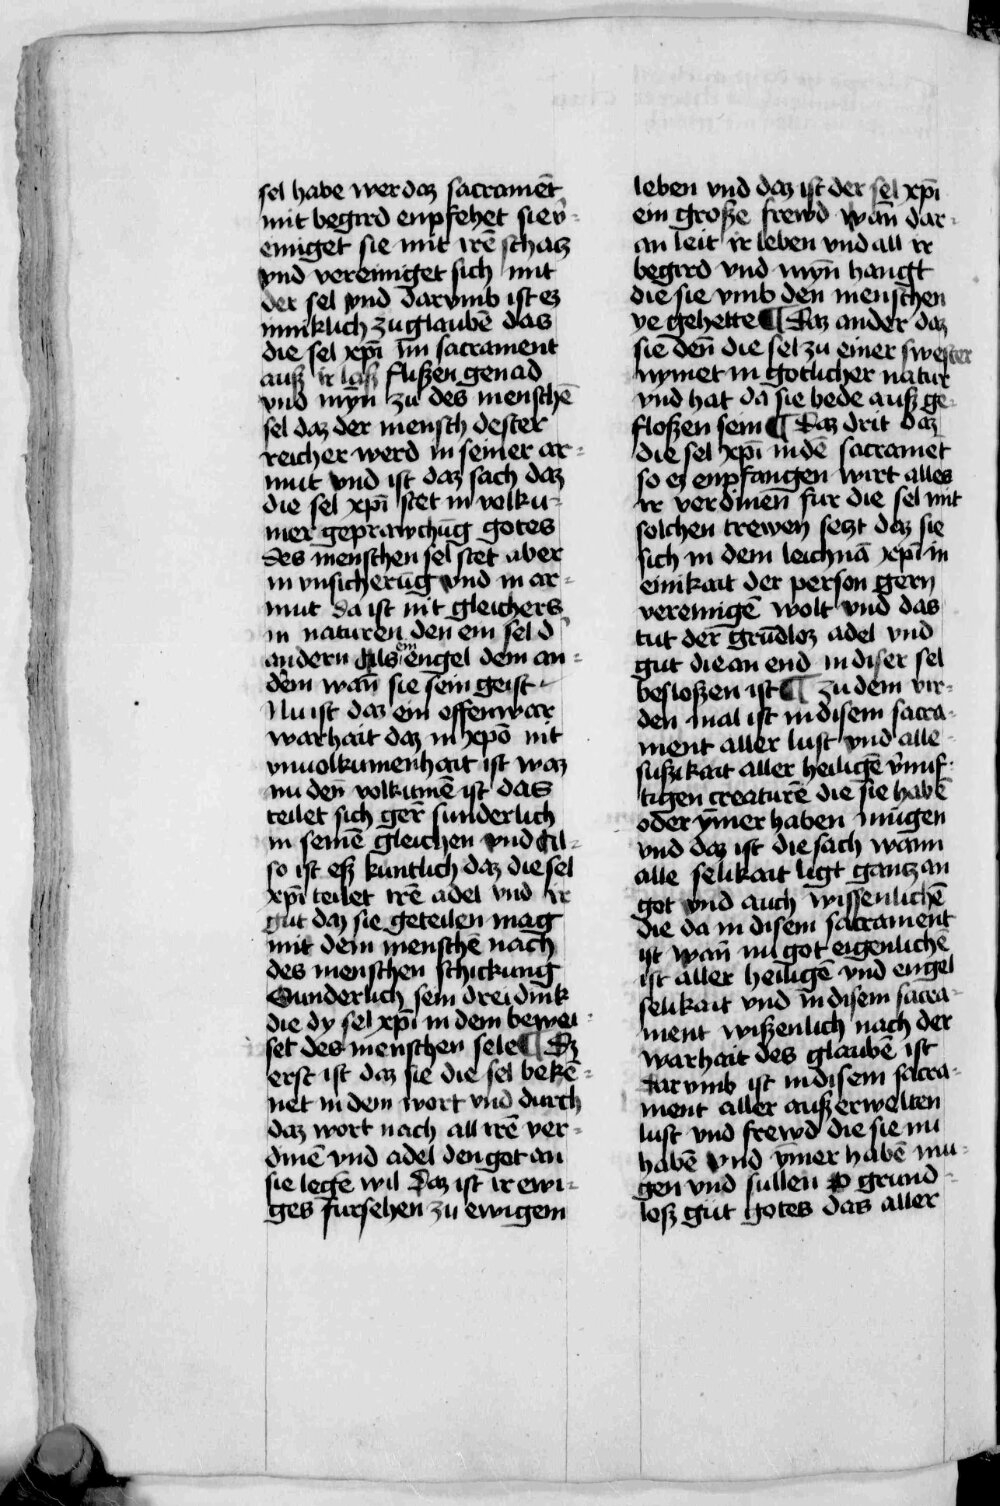 sel habe wer daz sacramēt
mit begird enpfehet sie v̄-
einiget sie mit irē schatz
vnd vereiniget sich mit
der sel vnd darvmb ist ez
minklich zu glaubē das
die sel xp̄i im sacrament
auß ir laß flißen genad
vnd myn̄ zu des menschē
sel daz der mensch dester
reicher werd in seiner ar-
mut vnd ist daz sach daz
die sel xp̄i stet in volku-
mer geprawchūg gotes
des menschen sel stet aber
in vnsicherūg vnd in ar-
mut da ist nit gleichers
in naturen den ein sel d̄
andern als ein engel dem an-
dern wan̄ sie sein geist
Nu ist daz ein offenwar
warhait daz in xp̄o nit
vnuolkumenhait ist waz
nu den̄ volkumē ist das
teilet sich gern̄ sunderlich
in seinē gleichen vnd Al-
so ist eß kuntlich daz die sel
xp̄i teilet irē adel vnd ir
gut daz sie geteilen mag
mit dem menschē nach
des menschen schickung
Sunderlich sein drei dink
die dy sel xp̄i in dem bewei-
set des menschen sele ¶ Dz
erst ist daz sie die sel bekē-
net in dem wort vnd durch
daz wort nach all irē ver-
dinē vnd adel den got an
sie legē wil Daz ist ir ewi-
ges fursehen zu ewigem
leben vnd daz ist der sel xp̄i
ein große frewd wan̄ dar-
an leit ir leben vnd all ir
begird vnd myn̄ hangt
die sie vmb den menschen
ye gehette ¶ Daz ander daz
sie den̄ die sel zu einer swester
nymet in gotlicher natur
vnd hat da sie bede auß ge-
floßen sein ¶ Daz drit daz
die sel xp̄i in dē sacramēt
so ez enpfangen wirt alles
ir verdinen fur die sel mit
solchen trewen setzt daz sie
sich in dem leichnā xp̄i in
einikait der person gern
vereinigē wolt vnd das
tut der grūdloz adel vnd
gut die an end in diser sel
besloßen ist ¶ zu dem vir-
den mal ist in disem sacra-
ment aller lust vnd alle
sußikait aller heiligē v̄nuf-
tigen creaturē die sie habē
oder ȳmer haben mügen
vnd daz ist die sach wann
alle selikait ligt gantz an
got vnd auch wissenlichē
die da in disem sacrament
ist wan̄ nu got eigenlichē
ist aller heiligē vnd engel
selikait vnd in disem sacra-
ment wißenlich nach der
warhait des glaubē ist
darvmb ist in disem sacra-
ment aller außerwelten
lust vnd frewd die sie nu
habē vnd ȳmer habē mu-
gen vnd sullen grund-
loß gut gotes das aller